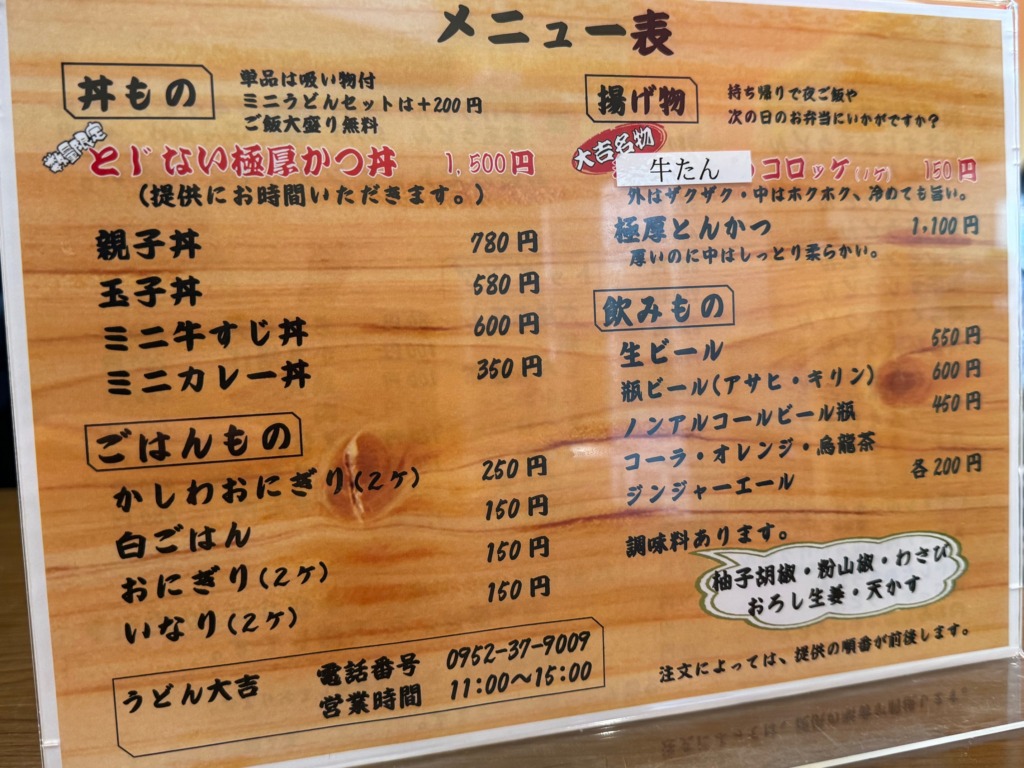 メニュー表
丼もの
単品は吸い物付
ミニうどんセットは+200円
ご飯大盛り無料
数量限定
とじない極厚かつ丼 1,500円
(提供にお時間いただきます。)
親子丼 780円
玉子丼 580円
ミニ牛すじ丼 600円
ミニカレー丼 350円
ごはんもの
かしわおにぎり(2ケ) 250円
白ごはん 150円
おにぎり(2ケ) 150円
いなり(2ケ) 150円
うどん大吉
電話番号 0952-37-9009
営業時間 11:00〜15:00
揚げ物
持ち帰りで夜ご飯や
次の日のお弁当にいかがですか?
大吉名物
牛たん コロッケ(1ケ) 150円
外はザクザク・中はホクホク、冷めても旨い。
極厚とんかつ 1,100円
厚いのに中はしっとり柔らかい。
飲みもの
生ビール 550円
瓶ビール(アサヒ・キリン) 600円
ノンアルコールビール瓶 450円
コーラ・オレンジ・烏龍茶
ジンジャーエール 各200円
調味料あります。
柚子胡椒・粉山椒・わさび
おろし生姜・天かす
注文によっては、提供の順番が前後します。